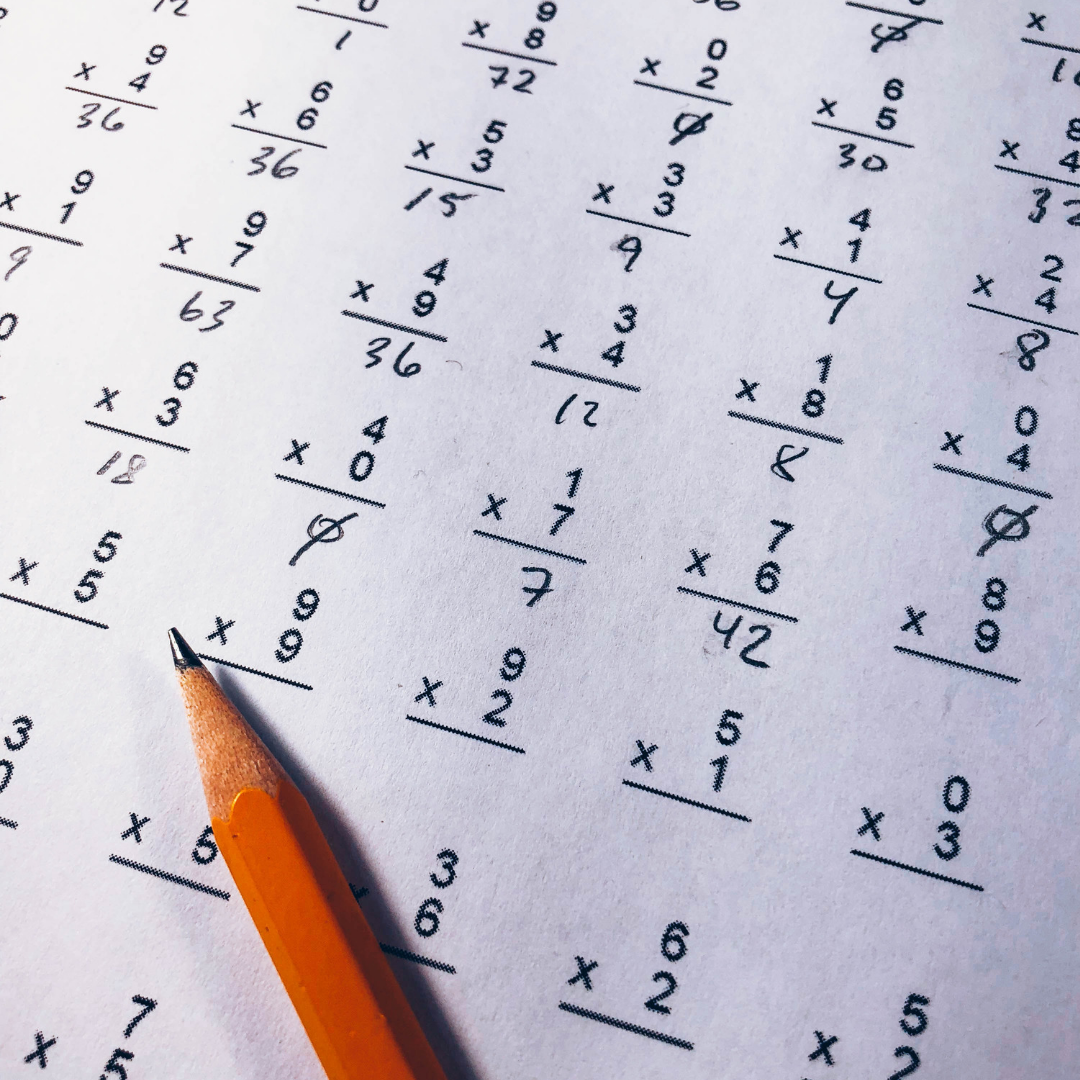 9 0 6 8
x 8 x 2 x 5 x 4
72 0 30 32
9 6 5 3 4 2
x 4 x 6 x 3 x 3 x 1 x 4
36 36 15 9 4 8
9 9 4 3 1 0
x 1 x 7 x 9 x 4 x 8 x 4
9 63 36 12 8 0
6 4 1 7 8
x 3 x 0 x 7 x 6 x 9
18 0 7 42
5 9 9 5 0
x 5 x 9 x 2 x 1 x 3
3 3 6 5
x 5 6 x 2 x 2
7
x 5